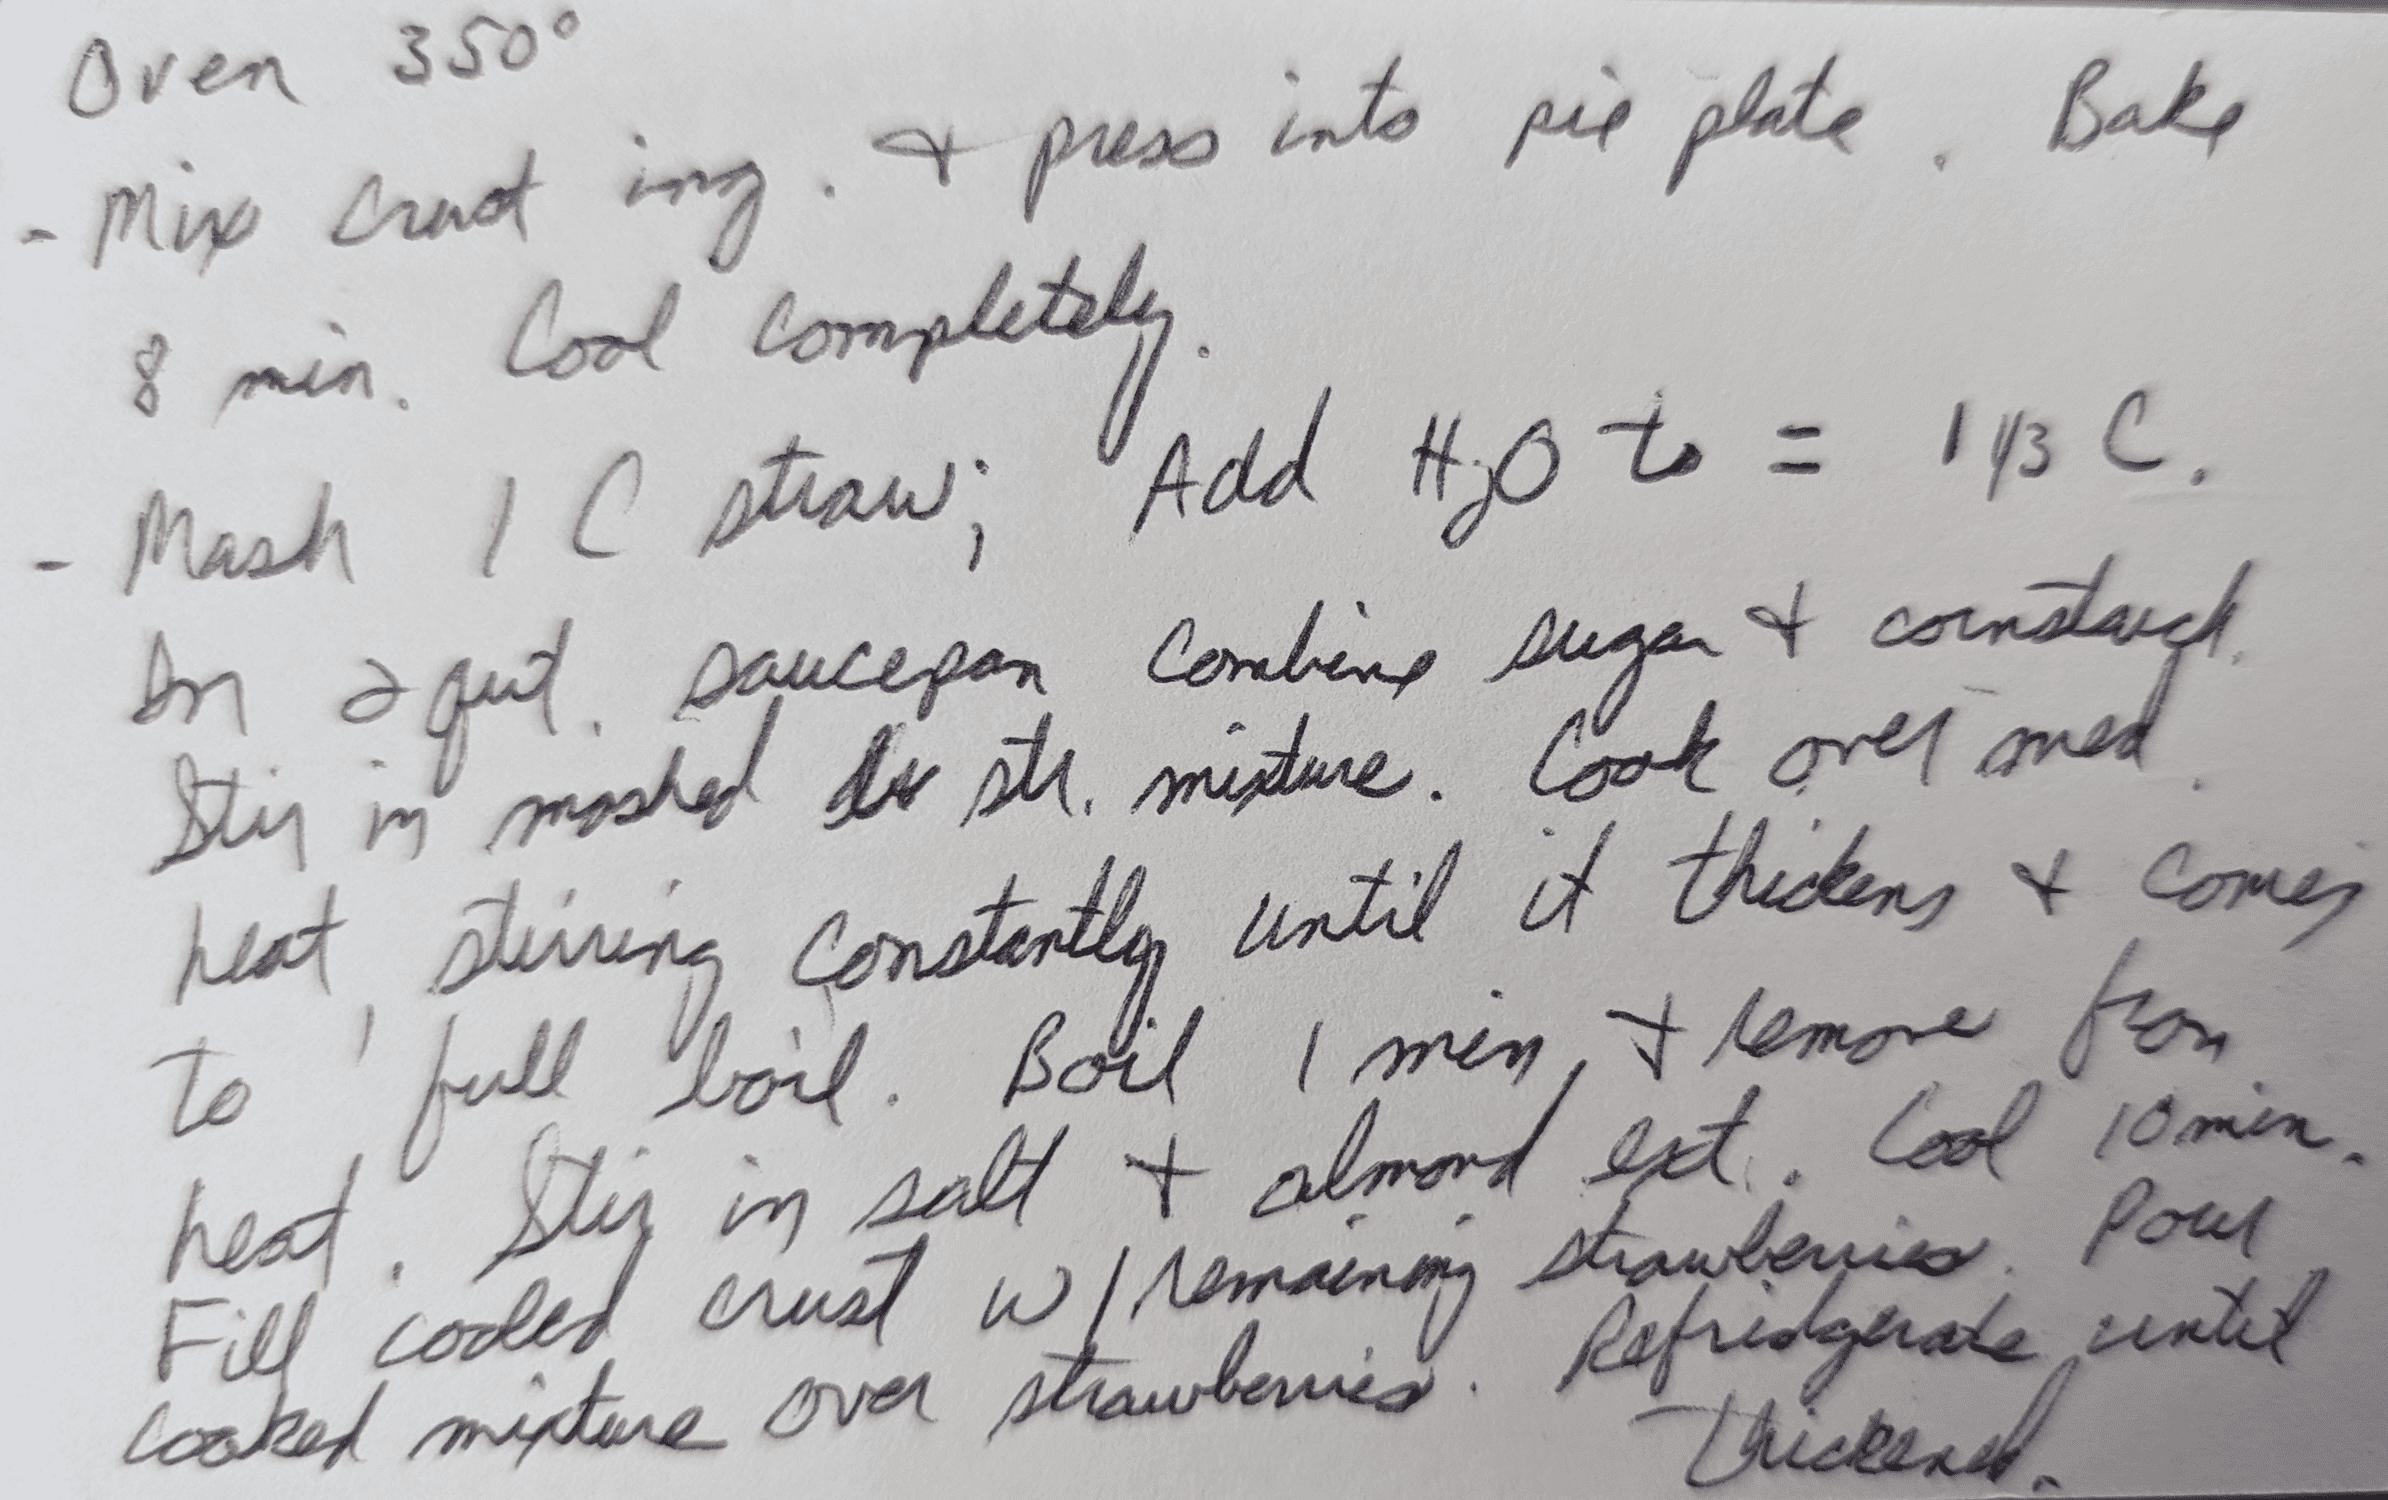 Oven 350°
- Mix crust ing. & press into pie plate. Bake
8 min. Cool completely.
- Mash 1 C straw; Add H2O to = 1 1/3 C.
In 2 qut. saucepan combine sugar & cornstarch.
Stir in mashed str. mixture. Cook over med.
heat, stirring constantly until it thickens & comes
to full boil. Boil 1 min, & remove from
heat. Stir in salt & almond ext. Cool 10 min.
Fill cooled crust w/ remaining strawberries. Pour
cooked mixture over strawberries. Refridgerate until
thickened.